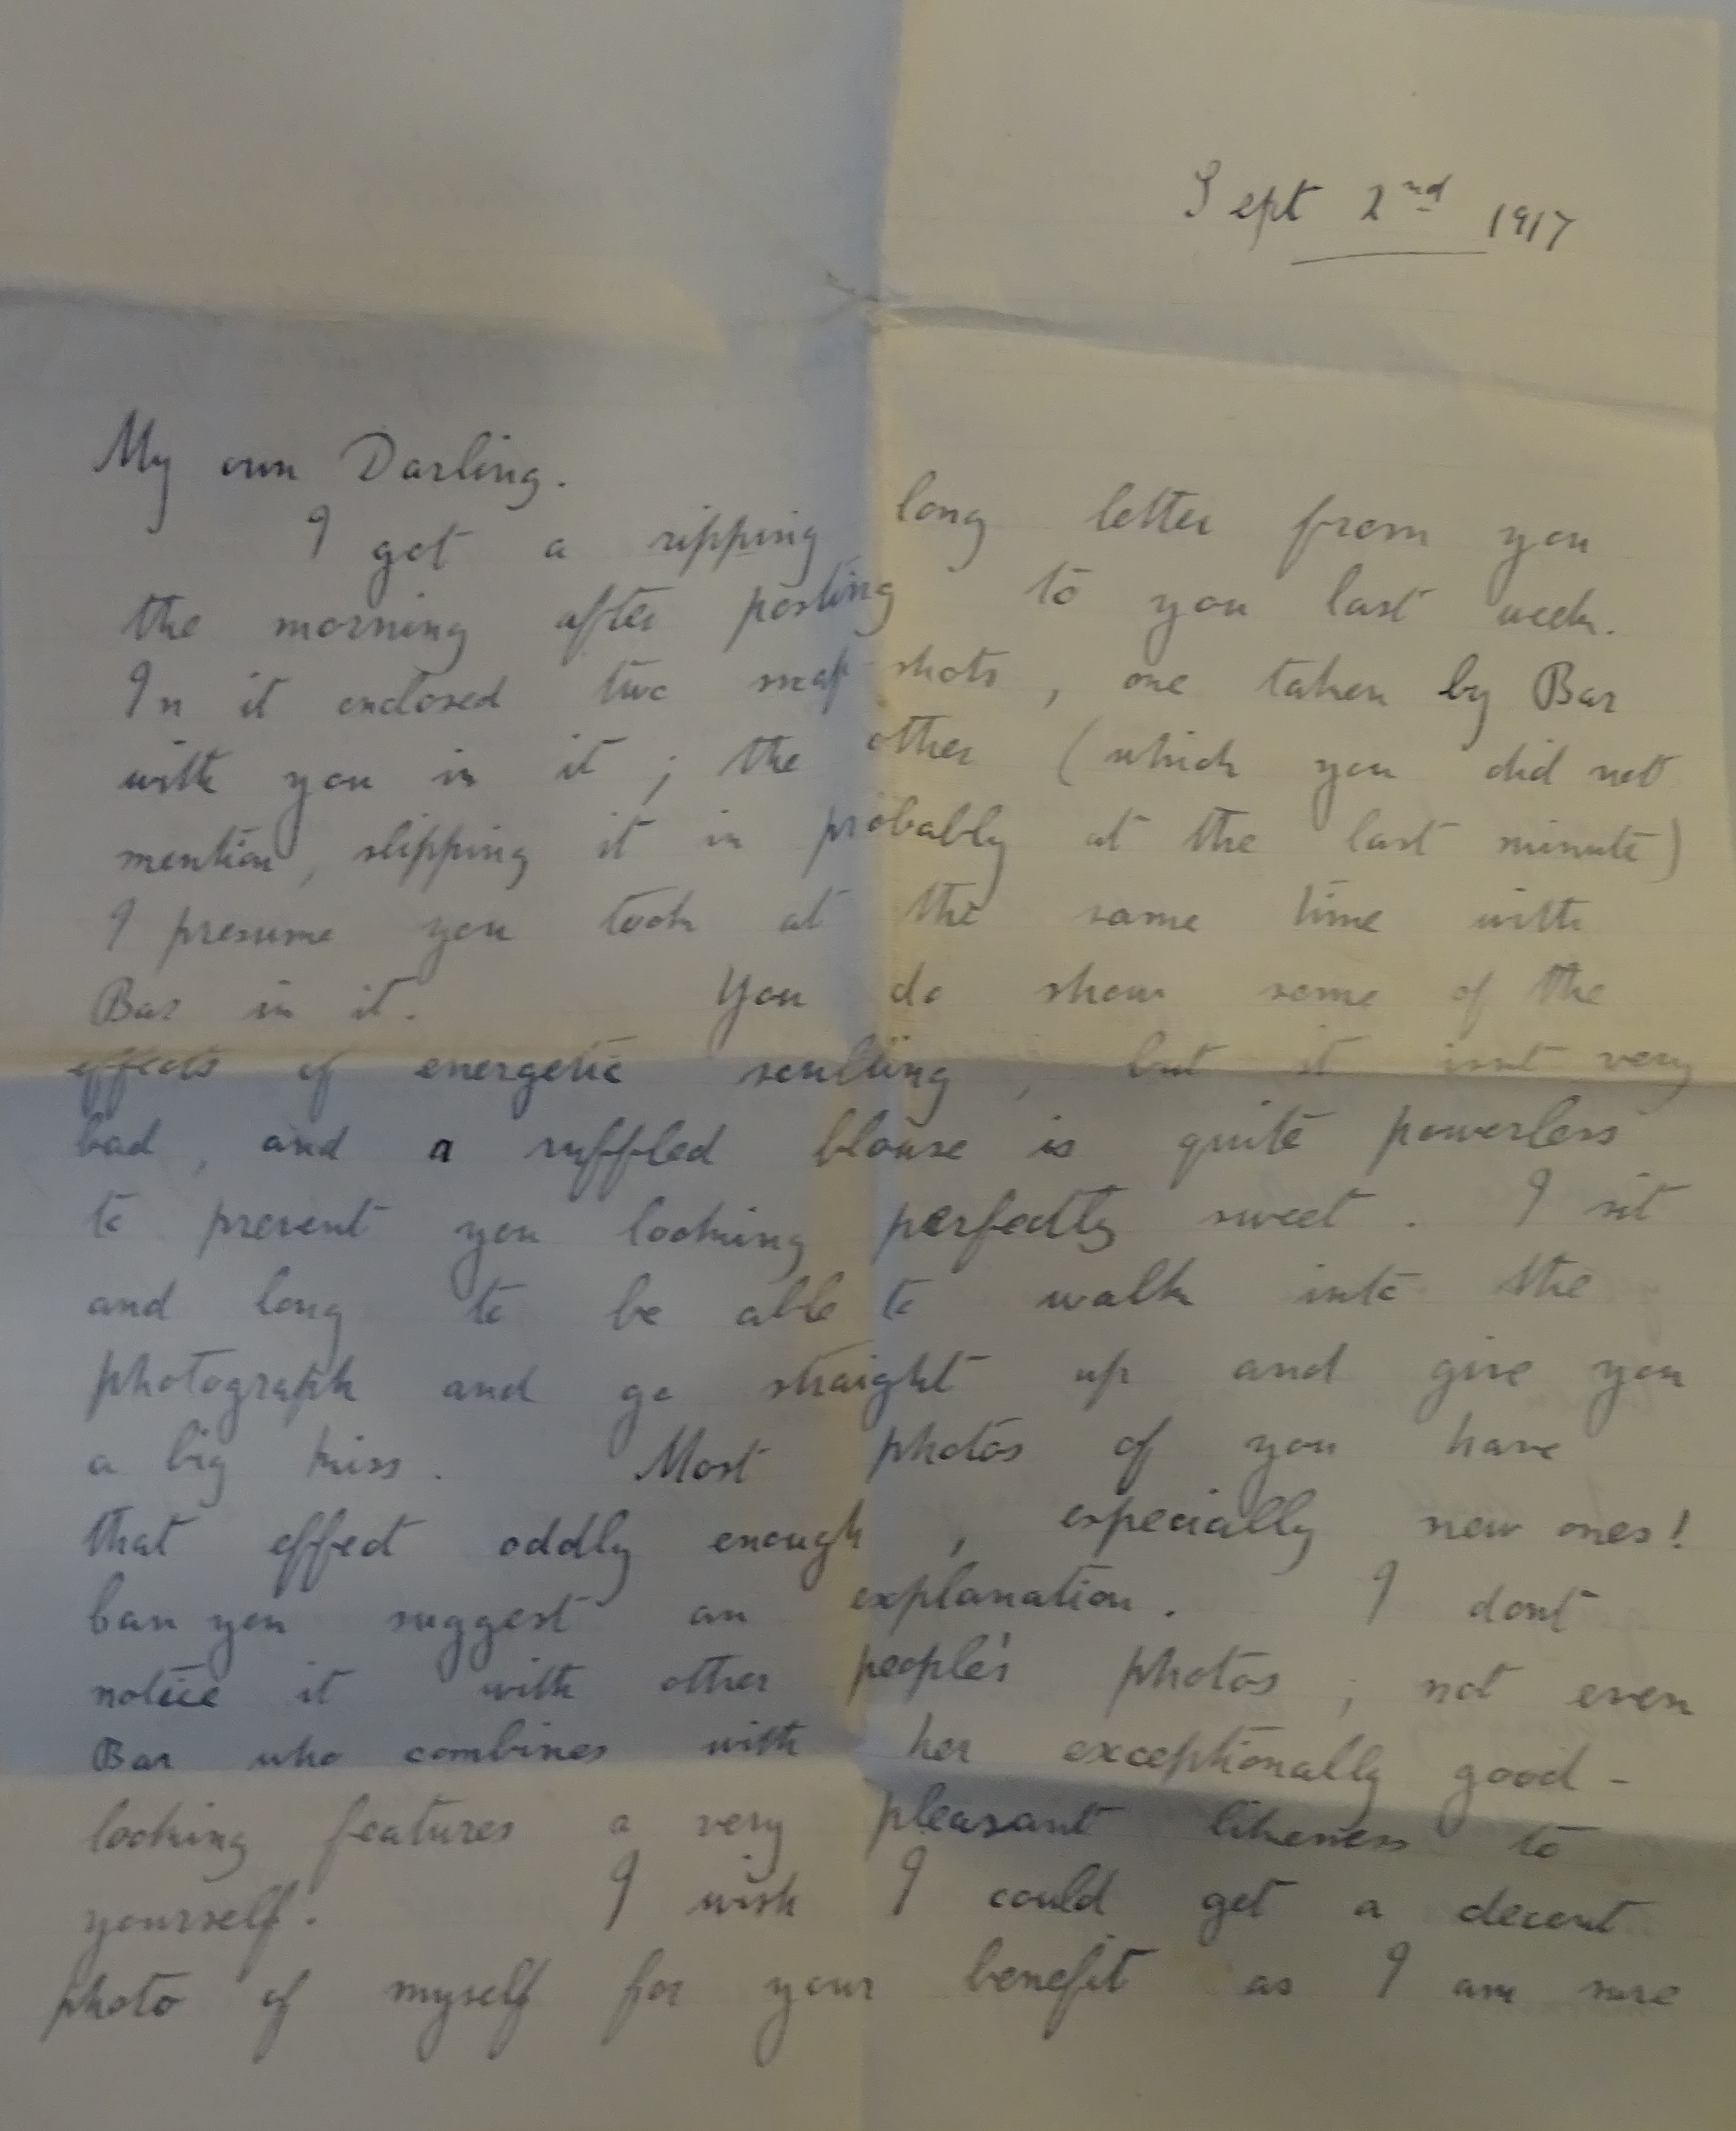 Sept 2nd 1917
My own Darling.
I got a ripping long letter from you
the morning after posting to you last week.
In it enclosed two snap-shots, one taken by Bar
with you in it; the other (which you did not
mention, slipping it in probably at the last minute)
I presume you took at the same time with
Bar in it. You do show some of the
effects of energetic sculling, but it isnt very
bad, and a ruffled blouse is quite powerless
to prevent you looking perfectly sweet. I sit
and long to be able to walk into the
photograph and go straight up and give you
a big kiss. Most photos of you have
that effect oddly enough, especially new ones!
Can you suggest an explanation. I dont
notice it with other people's photos; not even
Bar who combines with her exceptionally good-
looking features a very pleasant likeness to
yourself. I wish I could get a decent
photo of myself for your benefit as I am sure